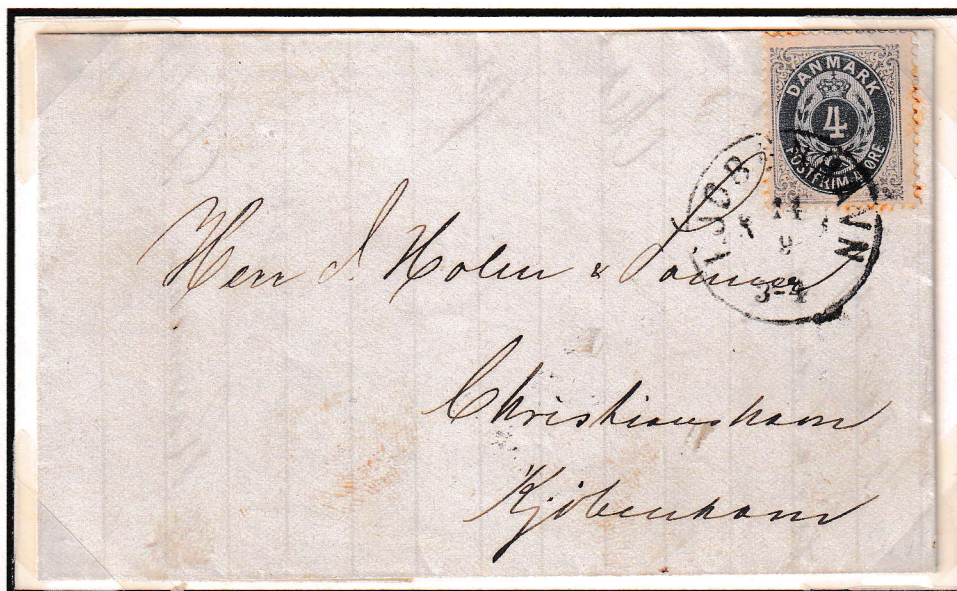 DANMARK
4
POSTFRIM. 4 ØRE
KJØBENHAVN
3-4
Herr J. Holm & Sønner
Christianshavn
Kjöbenhavn